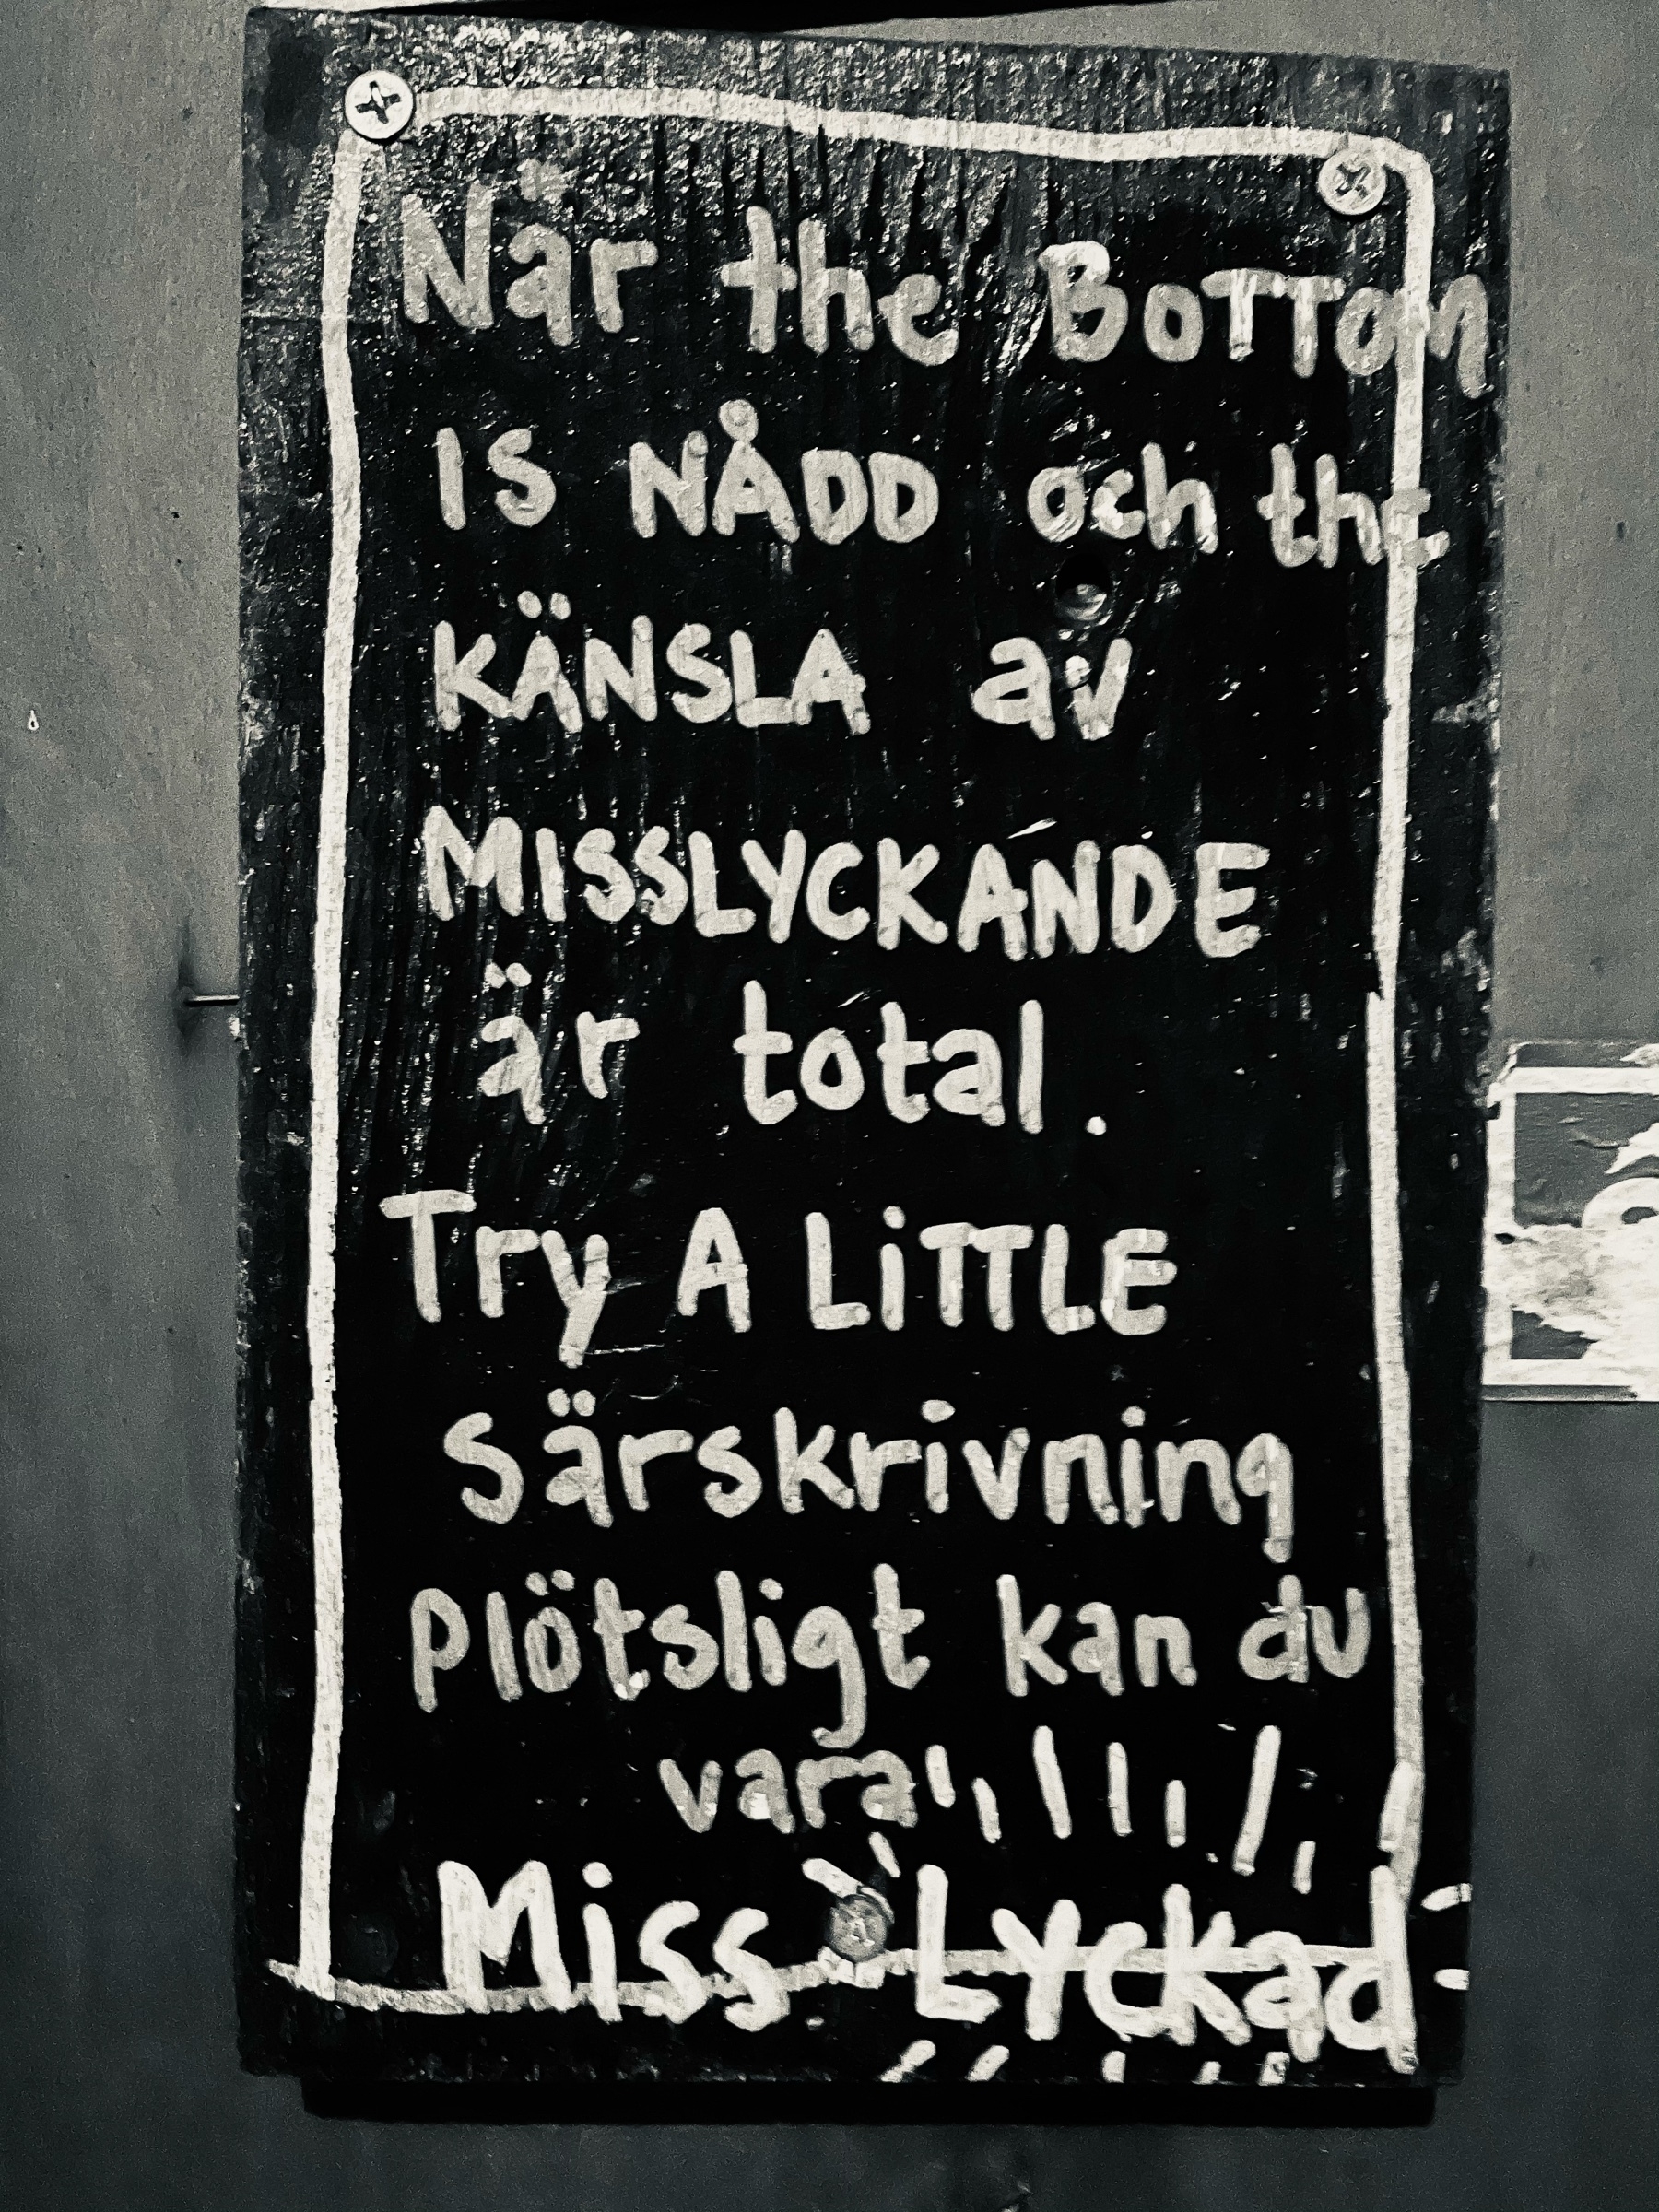 När the BOTTOM
IS NÅDD och the
KÄNSLA av
MISSLYCKANDE
är total.
Try A LiTTLE
särskrivning
plötsligt kan du
vara
Miss Lyckad